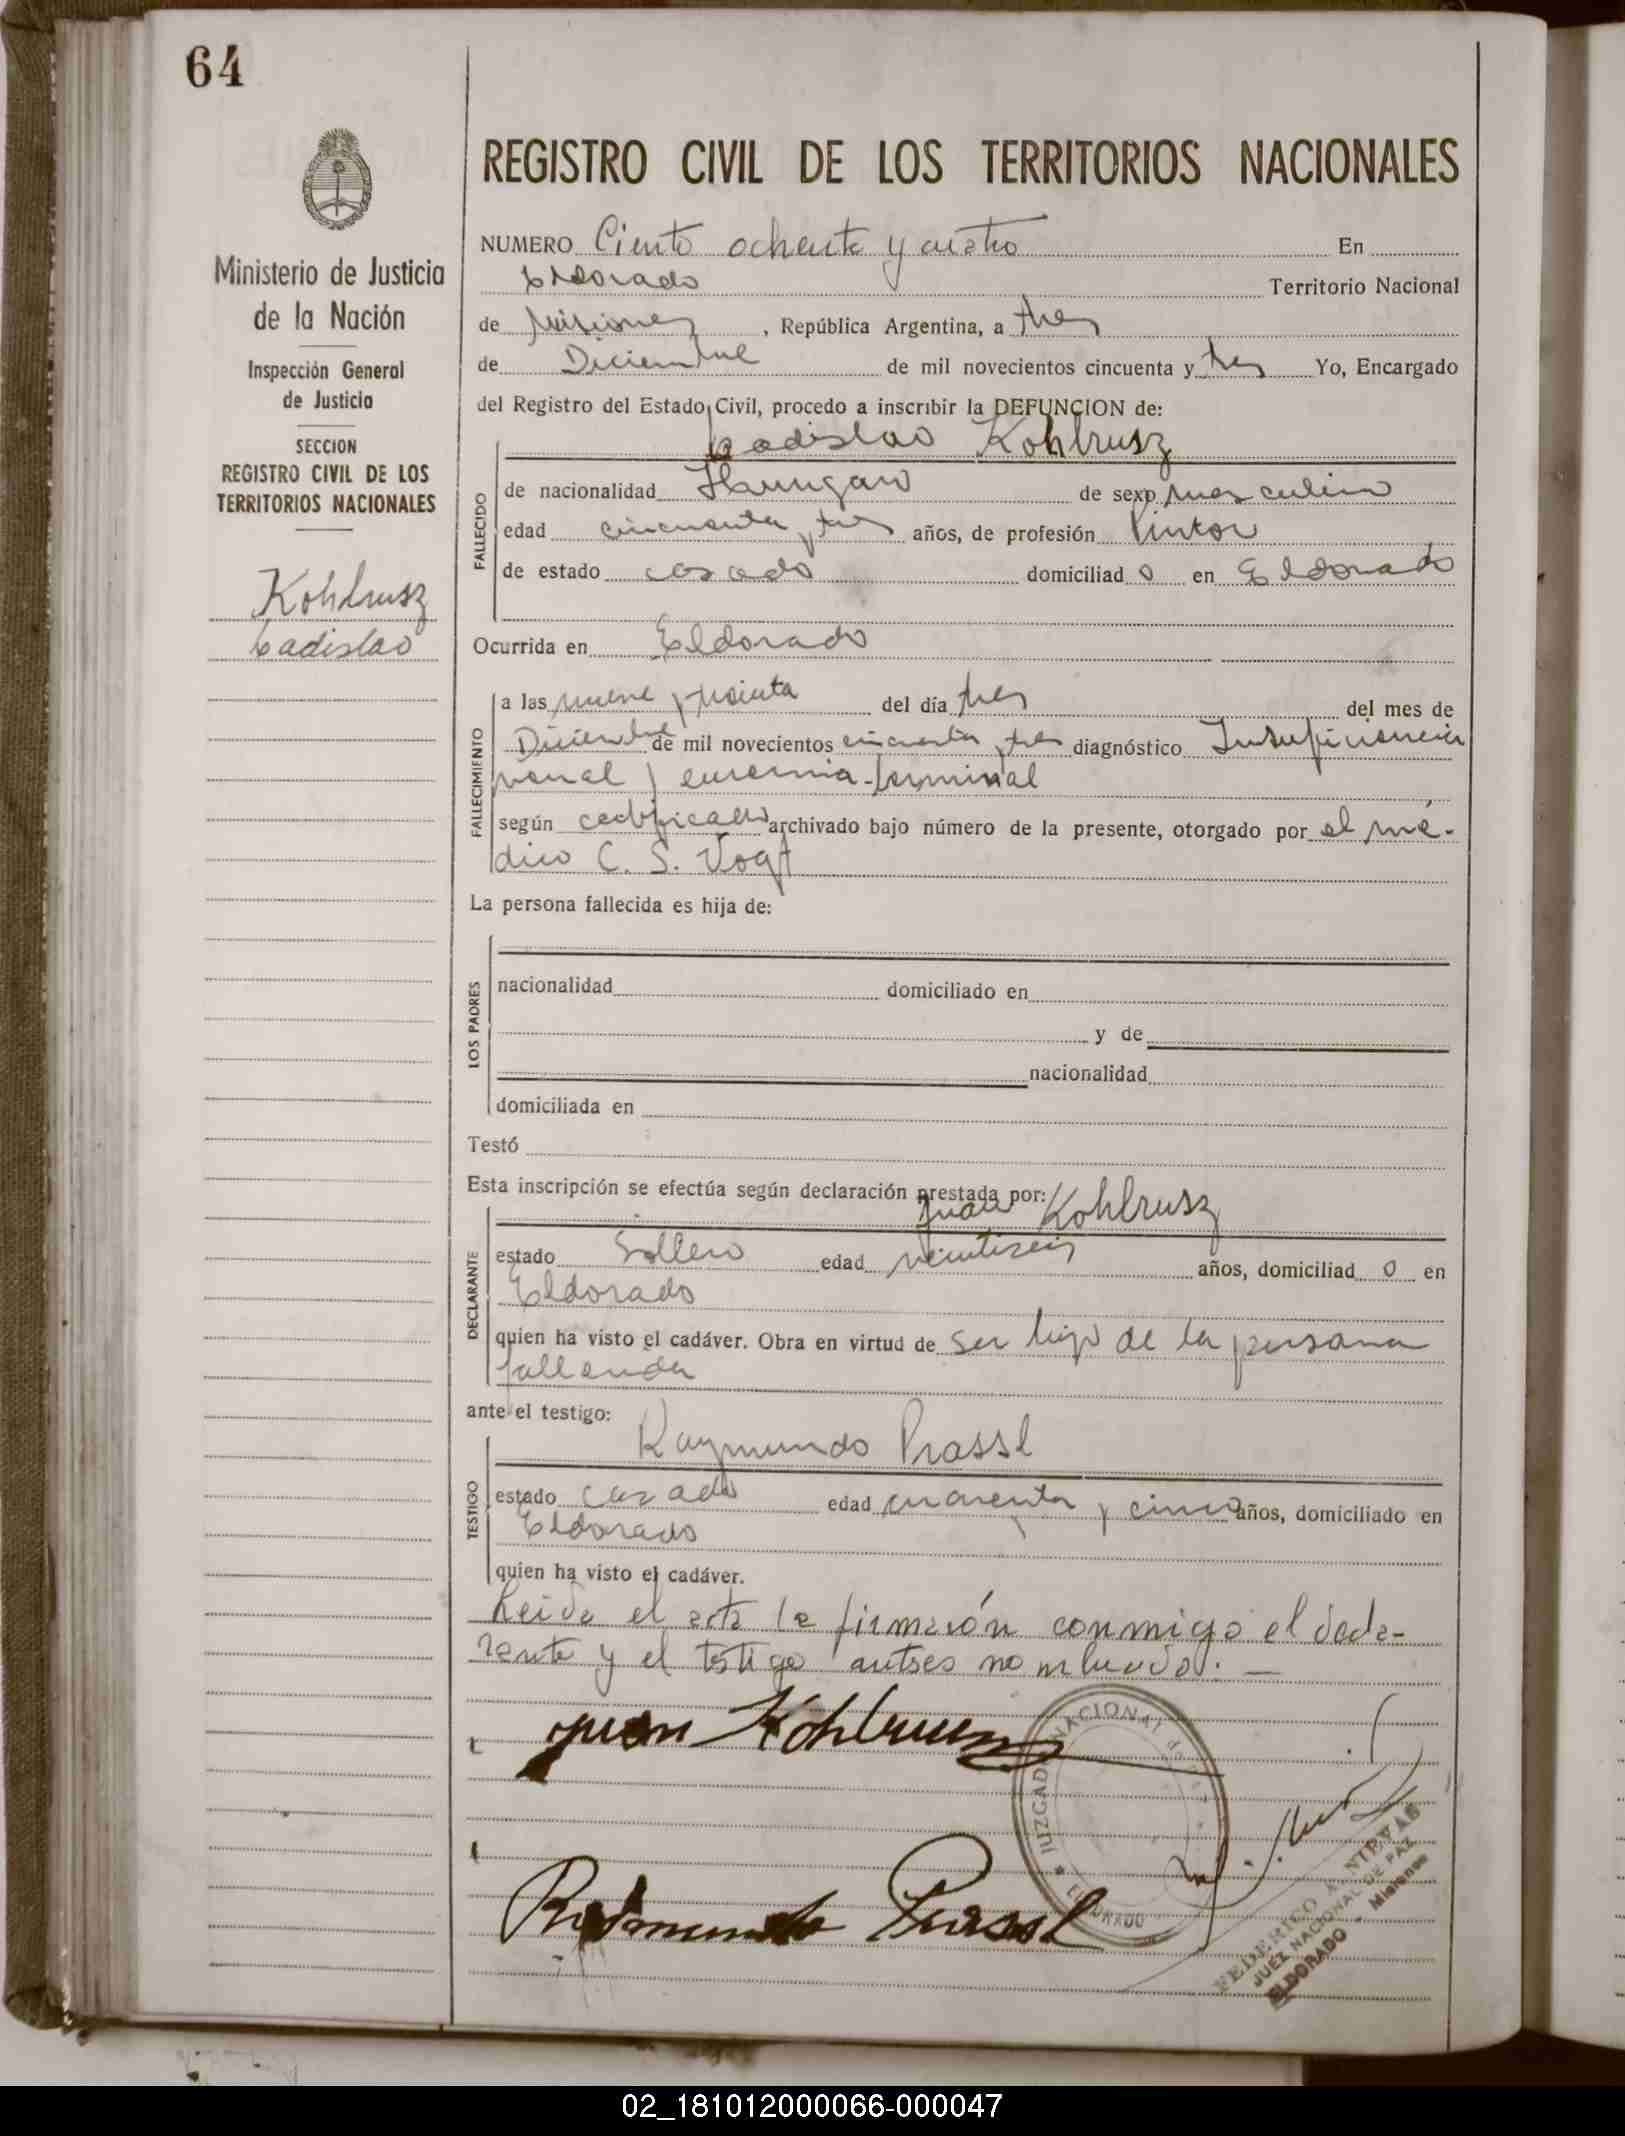 64
REGISTRO CIVIL DE LOS TERRITORIOS NACIONALES
Ministerio de Justicia
de la Nación
Inspección General
de Justicia
SECCION
REGISTRO CIVIL DE LOS
TERRITORIOS NACIONALES
Kohlrusz
Ladislao
NUMERO Ciento ochenta y cuatro En
Eldorado Territorio Nacional
de Misiones, República Argentina, a tres
de Diciembre de mil novecientos cincuenta y tres Yo, Encargado
del Registro del Estado Civil, procedo a inscribir la DEFUNCION de:
Ladislao Kohlrusz
FALLECIDO
de nacionalidad Hungaro de sexo masculino
edad cincuenta y tres años, de profesión Pintor
de estado casado domiciliad o en Eldorado
Ocurrida en Eldorado
FALLECIMIENTO
a las nueve y treinta del día tres del mes de
Diciembre de mil novecientos cincuenta y tres diagnóstico Insuficiencia
renal y terminal
según certificado archivado bajo número de la presente, otorgado por el mé-
dico C. S. Vogt
La persona fallecida es hija de:
LOS PADRES
nacionalidad domiciliado en
y de
nacionalidad
domiciliada en
Testó
Esta inscripción se efectúa según declaración prestada por:
Juan Kohlrusz
DECLARANTE
estado soltero edad veintiseis años, domiciliad o en
Eldorado
quien ha visto el cadáver. Obra en virtud de ser hijo de la persona
fallecida
ante el testigo:
Raymundo Prassl
TESTIGO
estado casado edad cuarenta y cinco años, domiciliado en
Eldorado
quien ha visto el cadáver.
Leida el acta la firmarón conmigo el decla-
rante y el testigo antses nombrado. —
Juan Kohlrusz
JUZGADO NACIONAL DE PAZ
ELDORADO
Raymundo Prassl
FEDERICO A. NIEVAS
JUEZ NACIONAL DE PAZ
ELDORADO - Misiones
02_181012000066-000047